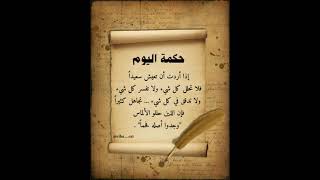 حكمة اليوم
إذا أردت أن تعيش سعيداً
فلا تحلل كل شيء ولا تفسر كل شيء
ولا تدقق في كل شيء ... تجاهل كثيراً
فإن الذين حللوا الألماس
"وجدوا أصله فحماً" .